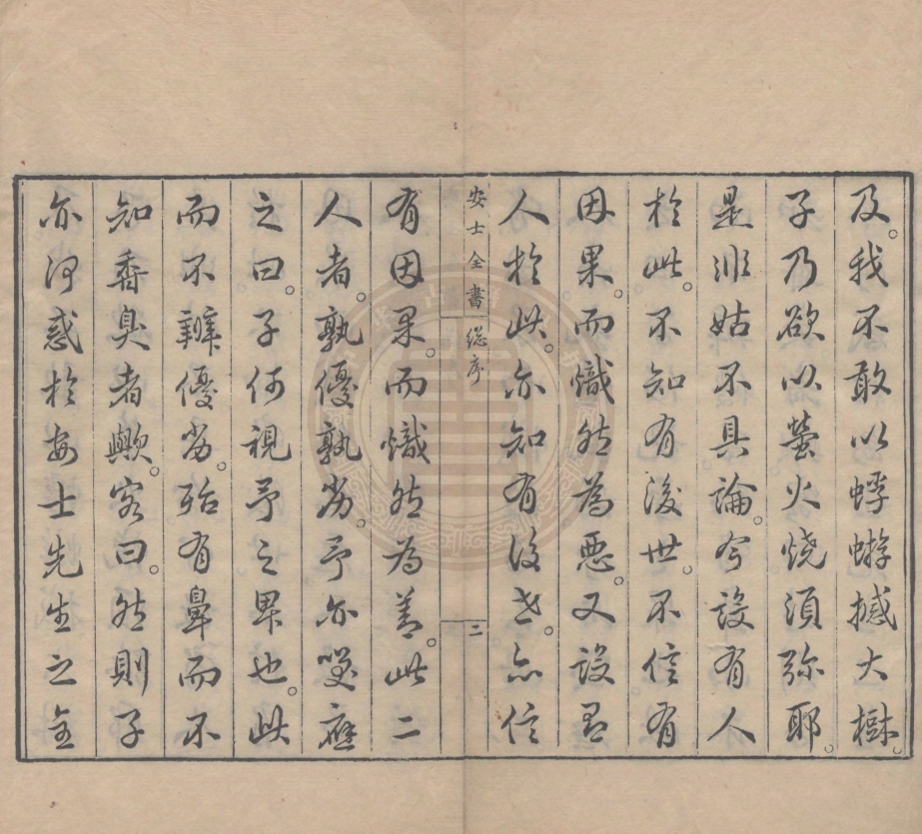 及。我不敢以蜉蝣撼大樹。
子乃欲以螢火燒須彌耶。
是非姑不具論。今設有人
於此。不知有後世。不信有
因果。而熾然為惡。又設有
人於此。亦知有後世。亦信
安士全書 總序 二
有因果。而熾然為善。此二
人者。孰優孰劣。予亦笑應
之曰。子何視予之卑也。此
而不辨優劣。殆有鼻而不
知香臭者歟。客曰。然則子
亦何惑於安士先生之全